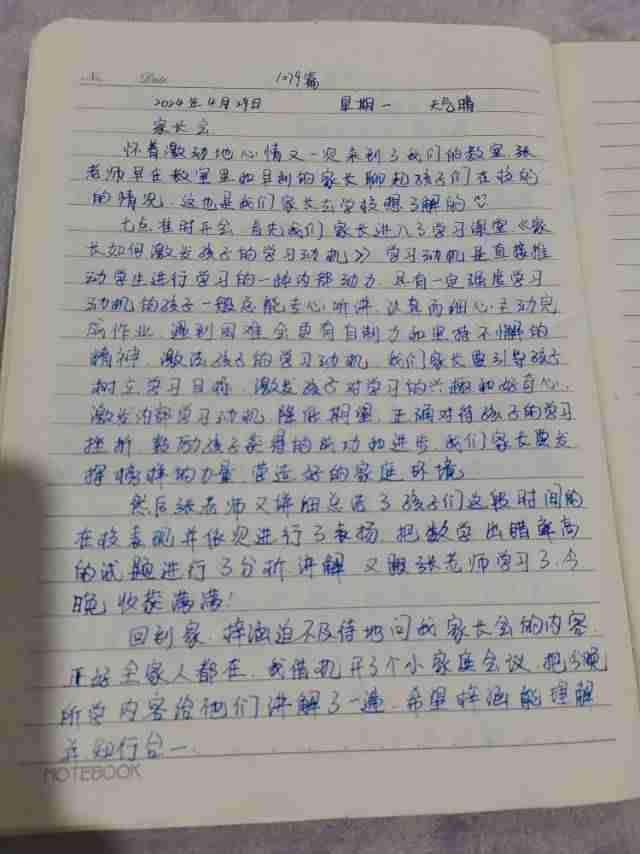 No. Date 1079篇
2024年4月29日 星期一 天气晴
家长会
怀着激动地心情又一次来到了我们的教室,张
老师早在教室里和早到的家长聊起孩子们在校的
的情况,这也是我们家长去学校想了解的♡
七点准时开会,首先我们家长进入了学习课堂《家
长如何激发孩子的学习动机》学习动机是直接推
动学生进行学习的一种内部动力,具有一定强度学习
动机的孩子一般总能专心听讲,认真而细心,主动完
成作业,遇到困难会更有自制力和坚持不懈的
精神,激活孩子的学习动机,我们家长要引导孩子
树立学习目标,激发孩子对学习的兴趣和好奇心,
激发内部学习动机,降低期望,正确对待孩子的学习
挫折,鼓励孩子获得的成功和进步,我们家长要发
挥榜样的力量,营造好的家庭环境。
然后张老师又详细总结了孩子们这段时间的
在校表现并依次进行了表扬,把数学出错率高
的试题进行了分析讲解,又跟张老师学习了,今
晚收获满满!
回到家,梓涵迫不及待地问我家长会的内容,
正好全家人都在,我借机开了个小家庭会议,把今晚
所学内容给他们讲解了一遍,希望梓涵能理解
并知行合一.
NOTEBOOK